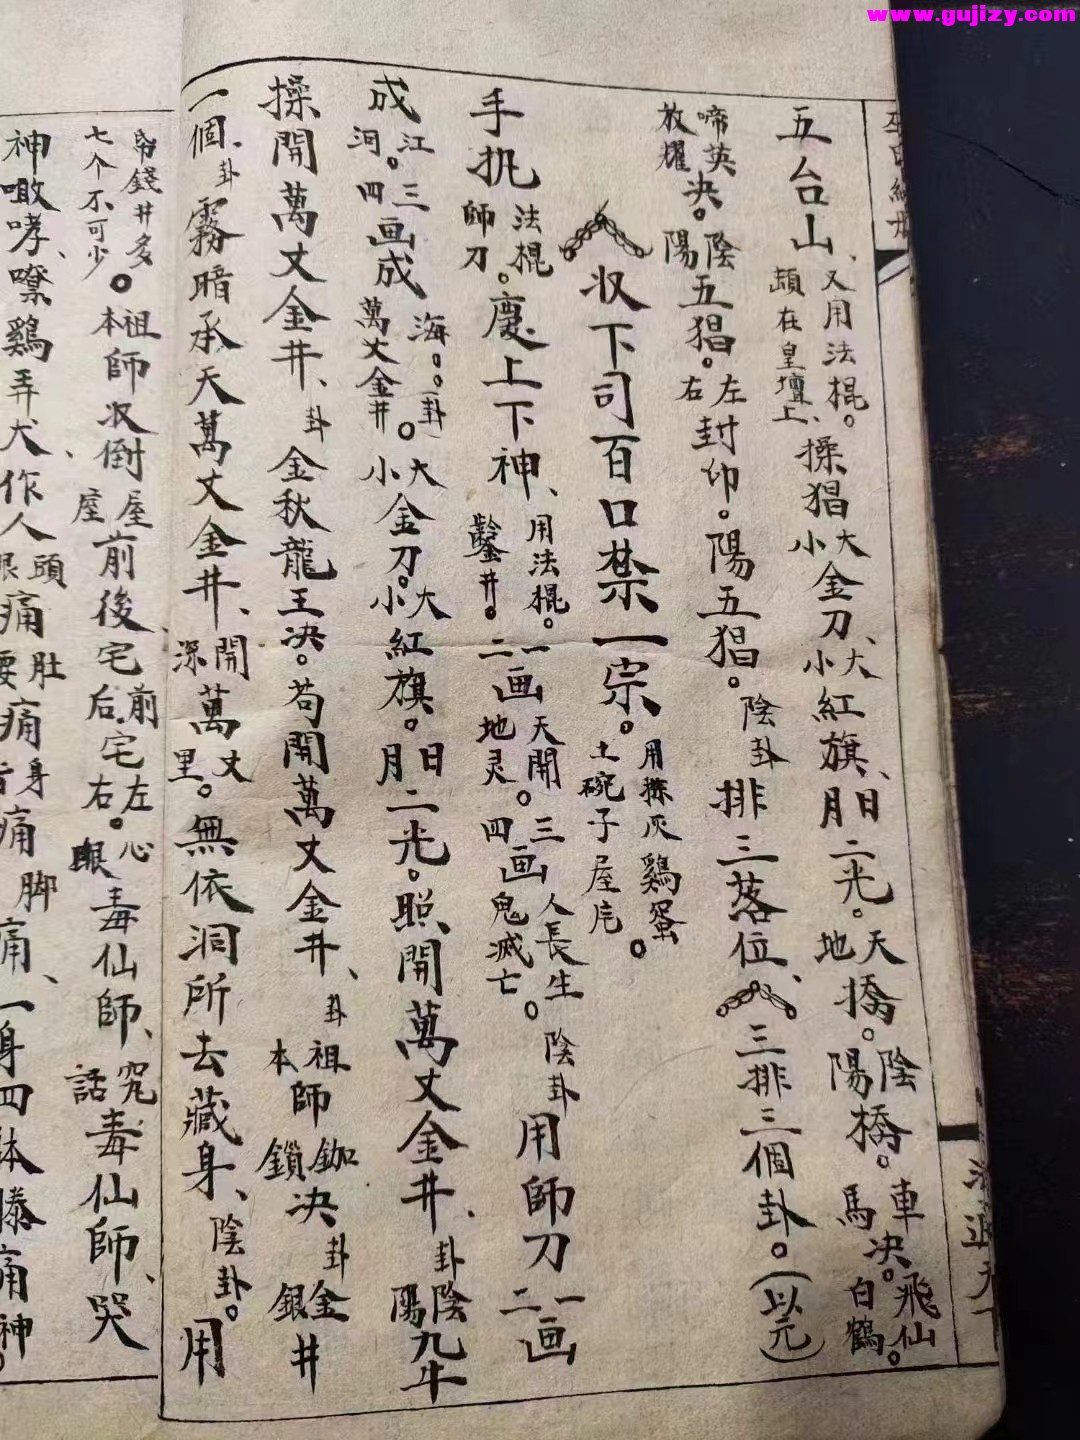 www.gujizy.com
五台山、又用法棍。頭在皇壇上、揉猖大小金刀、大小紅旗、日月二光。天地橋。陰陽橋。車馬决。飛仙白鶴。
啼英放耀决。陰陽五猖。左右封印。陽五猖。陰卦排三落位、三排三個卦。(以完)
收下司百口禁一宗。用撩灰鷄蛋土碗子屋庀。
手扒法棍師刀。慶上下神、用法棍。鑿井。一二画天開地灵。三四画人長生鬼滅亡。陰卦用師刀一二画
成江河。三四画成海。卦萬丈金井。大小金刀。大小紅旗。日月二光。照開萬丈金井、卦陰陽九牛
揉開萬丈金井、卦金秋龍王决。苟開萬丈金井、卦祖本師鈿鎖决卦金銀井
一個卦霧暗承天萬丈金井、開深萬丈里。無依洞所去藏身、陰卦。用
帛錢井多七个不可少。祖本師收倒屋屋前後宅前后宅左右。心眼毒仙師、究話毒仙師、哭
神噉哮嘹鷄弄犬、作人頭眼痛肚腰痛身痛脚痛、一身四体滕痛神。